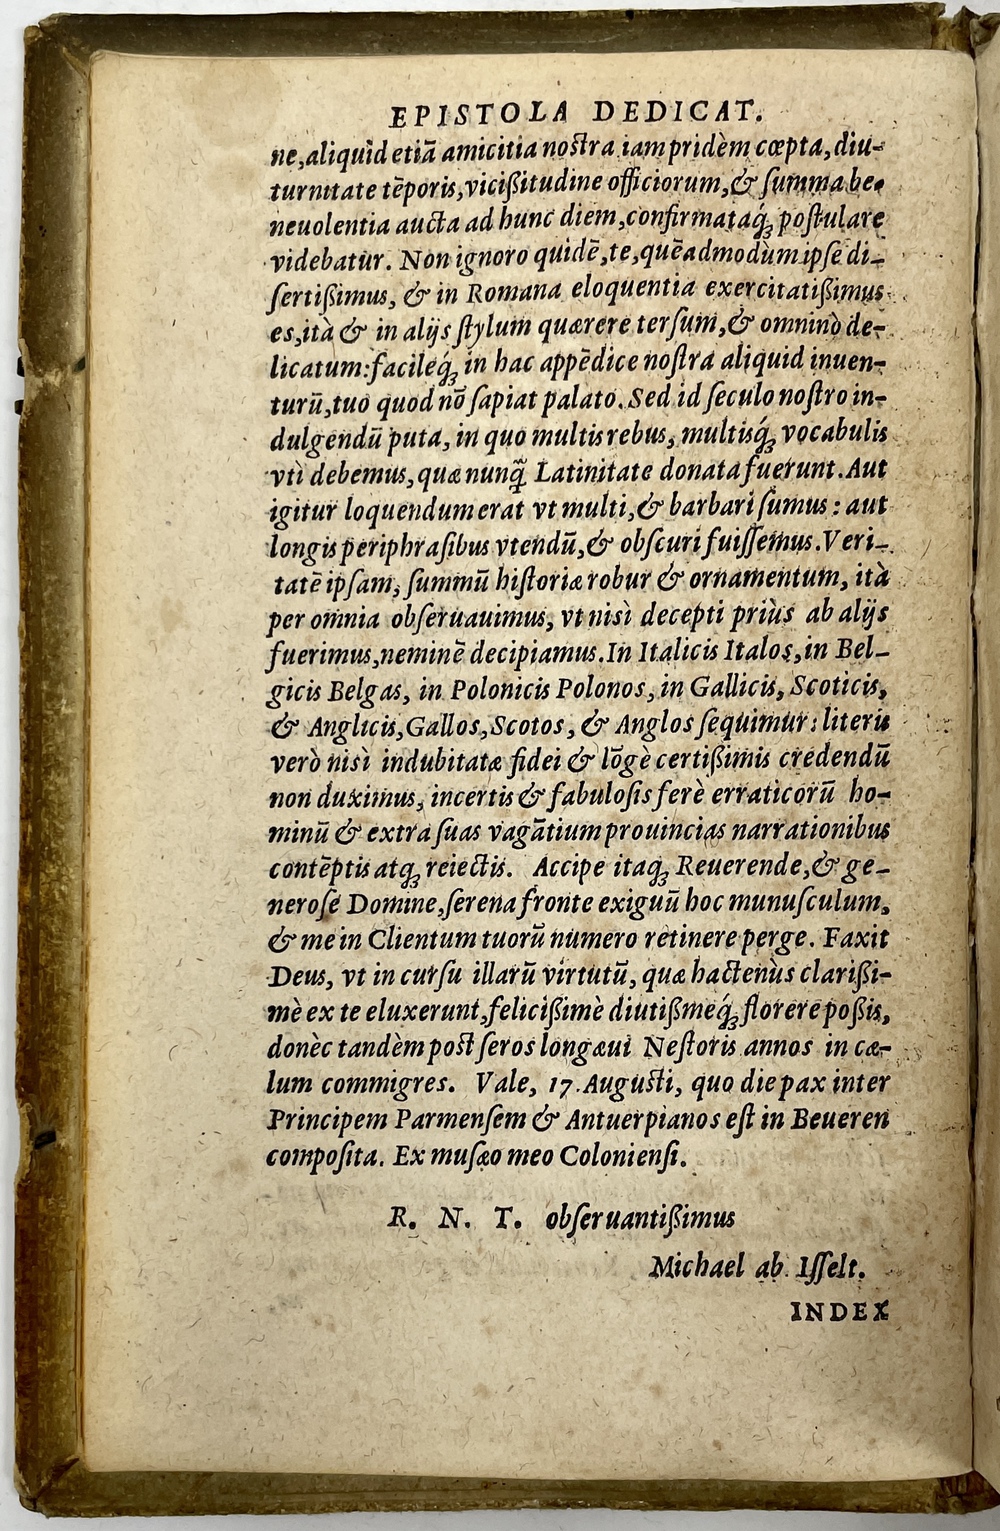 EPISTOLA DEDICAT.
ne, aliquid etiā amicitia nostra iampridèm cœpta, diu-
turnitate tēporis, vicißitudine officiorum, & summa be-
neuolentia aucta ad hunc diem, confirmataq́; postulare
videbatur. Non ignoro quidē, te, quēadmodùm ipse di-
sertißimus, & in Romana eloquentia exercitatißimus
es, ità & in alijs stylum quærere tersum, & omninò de-
licatum: facileq́; in hac appēdice nostra aliquid inuen-
turū, tuo quod nō sapiat palato. Sed id seculo nostro in-
dulgendū puta, in quo multis rebus, multisq́; vocabulis
vti debemus, quæ nunq̃ Latinitate donata fuerunt. Aut
igitur loquendum erat vt multi, & barbari sumus: aut
longis periphrasibus vtendū, & obscuri fuissemus. Veri-
tatē ipsam, summū historiæ robur & ornamentum, ità
per omnia obseruauimus, vt nisì decepti priùs ab alijs
fuerimus, neminē decipiamus. In Italicis Italos, in Bel-
gicis Belgas, in Polonicis Polonos, in Gallicis, Scoticis,
& Anglicis, Gallos, Scotos, & Anglos sequimur: literis
verò nisì indubitatæ fidei & lōgè certißimis credendū
non duximus, incertis & fabulosis ferè erraticorū ho-
minū & extra suas vagātium prouincias narrationibus
contēptis atq; reiectis. Accipe itaq; Reuerende, & ge-
nerose Domine, serena fronte exiguū hoc munusculum,
& me in Clientum tuorū numero retinere perge. Faxit
Deus, vt in cursu illarū virtutū, quæ hactenùs clarißi-
mè ex te eluxerunt, felicißimè diutißmeq́; florere poßis,
donèc tandèm post seros longæui Nestoris annos in cæ-
lum commigres. Vale, 17. Augusti, quo die pax inter
Principem Parmensem & Antuerpianos est in Beueren
composita. Ex musæo meo Coloniensi.
R. N. T. obseruantißimus
Michael ab Isselt.
INDEX